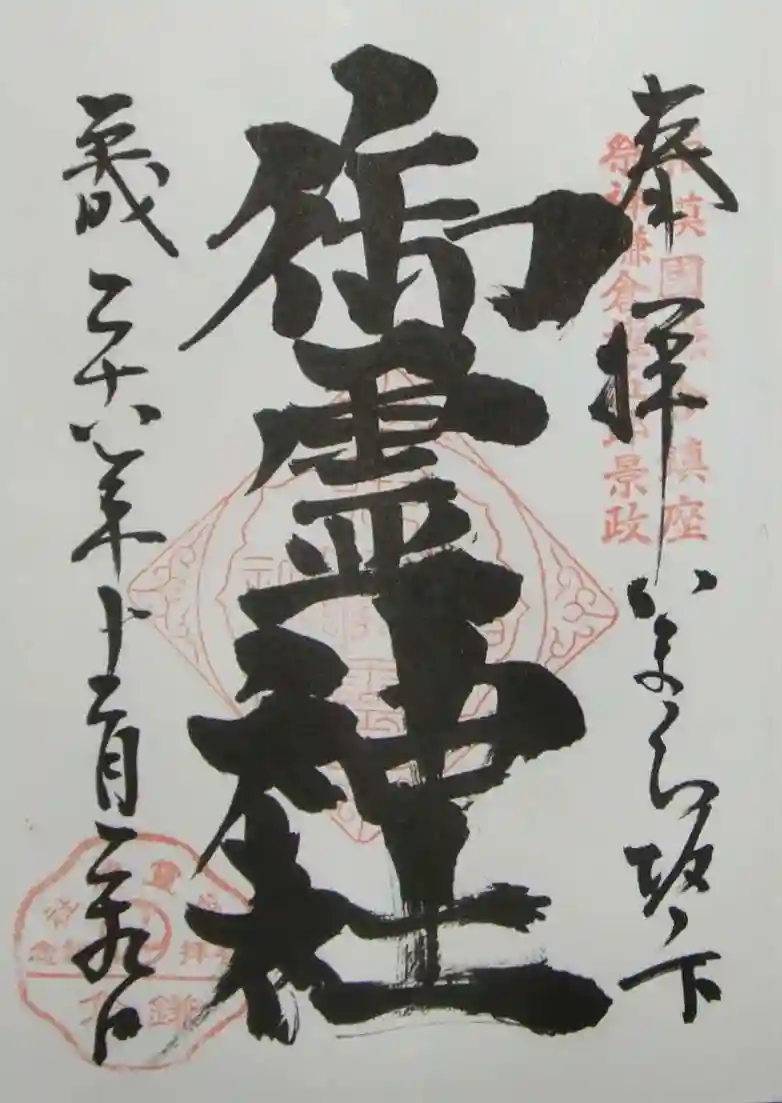 奉拝 かまくら坂ノ下
相模国鎌倉鎮座
祭神鎌倉権五郎景政
御霊神社
平成二十八年十二月二十九日